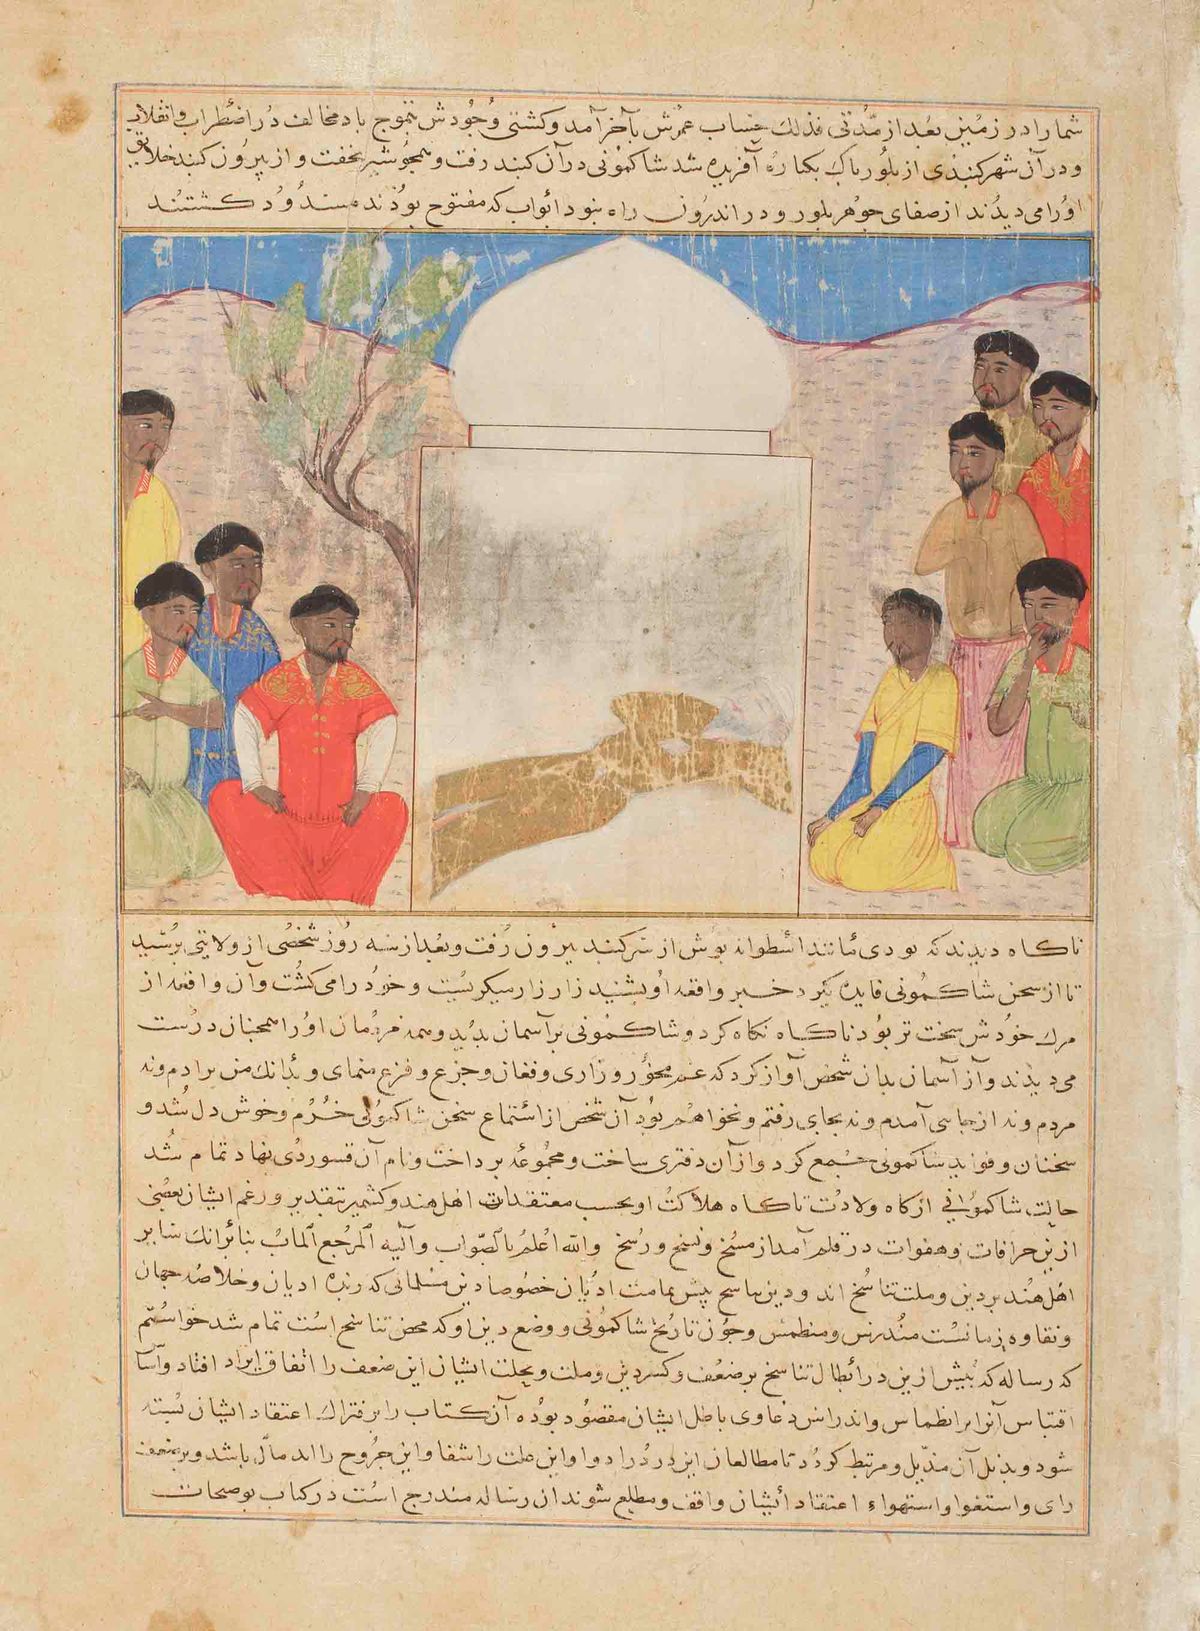 شما را در زمین بعد از مدتی فذلک حساب عمرش بآخر آمد و کشتی وجودش بتموج باد مخالف در اضطراب و انقلاب
و در آن شهر کنبدی از بلور پاک بکباره آفریده شد شاکمونی در آن کنبد رفت و همچو شیر بخفت و از بیرون کنبد خلایق
او را می دیدند از صفای جوهر بلور و در اندرون راه نبود ابواب که مفتوح بودند مسدود کشتند
ناکاه دیدند که نوری مانند اسطوانه نورش از سر کنبد بیرون رفت و بعد از سه روز شخصی از ولایتی برسید
تا از سخن شاکمونی فایده کیرد خبر واقعه او بشنید زار زار میکریست و خود را می کشت و آن واقعه از
مرک خودش سخت تر بود ناکاه نکاه کرد و شاکمونی بر آسمان بدید و همه مردمان او را همچنان درست
می دیدند و از آسمان بدان شخص آواز کرد که غم مخور و زاری و فغان و جزع و فزع منمای و بدانک من نزادم و نه
مردم و نه از جایی آمدم و نه بجای رفتم و نخواهم بود آن شخص از استماع سخن شاکمونی خرم و خوش دل شد و
سخنان و فواید شاکمونی جمع کرد و از آن دفتری ساخت و مجموعه پرداخت و نام آن نهاد تمام شد
حالت شاکمونی از کاه ولادت تا کاه هلاکت او بحسب معتقدات اهل هند و کشمیر بتقدیر و زعم ایشان بعضی
ازین خرافات و هفوات در قلم آمد از مسخ و نسخ و رسخ والله اعلم بالصواب و الیه المرجع المآب بنابر آنک سایر
اهل هند بر دین و ملت تناسخ اند و دین تناسخ پیش تمامت ادیان خصوصا دین مسلمانی که زبده ادیان و خلاصه جهان
و نقاوه زمانست مندرس و منطمس و چون تاریخ شاکمونی و وضع دین او که محض تناسخ است تمام شد خواستم
که رساله که پیش ازین در ابطال تناسخ بر ضعف و کسر دین و ملت و نحلت ایشان این ضعیف را اتفاق ایراد افتاد و اساس
اقتباس آنرا بر انطماس و اندراس دعاوی باطل ایشان مقصود بوده آن کتاب را بر فتراک اعتقاد ایشان بسته
شود و بذیل آن مذیل و مرتبط کردد تا مطالعان این درد را دوا و این علت را شفا و این جروح را اندمال باشد و بر ضعف
رای و استغوا و استهواء اعتقاد ایشان واقف و مطلع شوند آن رساله مندرج است در کتاب توضیحات